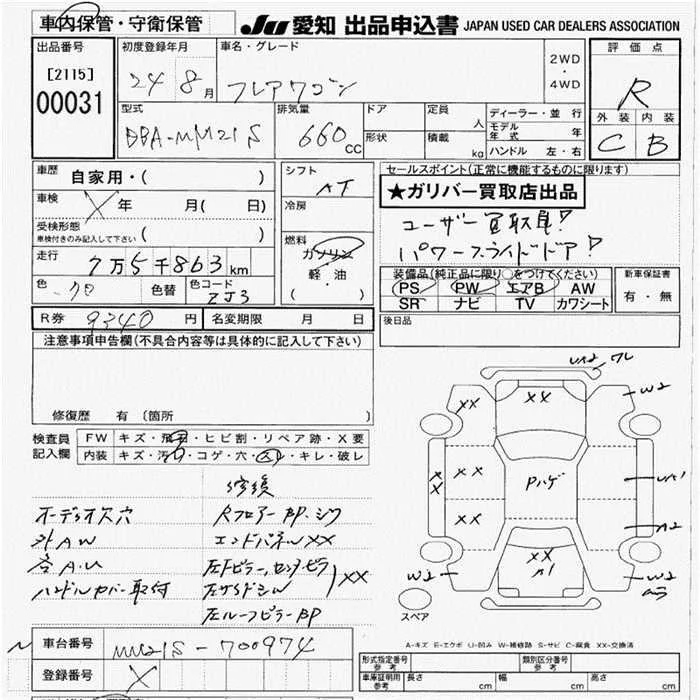 車内保管・守衛保管
JU 愛知 出品申込書 JAPAN USED CAR DEALERS ASSOCIATION
出品番号
[2115]
00031
初度登録年月
24 8月
車名・グレード
フレアワゴン
2WD
・
4WD
評価点
R
外装 内装
C B
型式
DBA-MM21S
排気量
660 CC
ドア
形状
定員
人
積載
kg
ディーラー・並行
モデル年式 年
ハンドル 左・右
車歴
自家用・( )
車検
X 年 月( 日)
受検形態
車検付きのみ記入して下さい ( )
走行
7万5千863km
色
クロ
色替
色コード
ZJ3
シフト
AT
冷房
燃料
ガソリン
軽・油
( )
セールスポイント(正常に機能するものに限ります)
★ガリバー買取店出品
ユーザー買取車!
パワースライドドア!
装備品(純正品に限り○をつけてください)
PS PW エアB AW
SR ナビ TV カワシート
新車保証書
有・無
R券 9340円
名変期限 月 日
後日品
注意事項申告欄(不具合内容等は具体的に記入して下さい)
修復歴 有〔箇所 〕
検査員
記入欄
FW キズ・飛石・ヒビ割・リペア跡・X要
内装 キズ・汚れ・コゲ・穴・スレ・キレ・破レ
修復
オーディオ欠穴
外AW
Rフロアー BP.シワ
エンドパネルXX
ハンドルカバー取付
左ルーフピラーBP
XX
車台番号 MM21S-700974
登録番号 X
XX
XX
W2
XX
XX
XX
Pハゲ
A2
XX
A1
W2
W2
スペア
A-キズ E-エクボ U-凹み W-補修跡 S-サビ C-腐食 XX-交換済
形式指定番号
参考
類別区分番号
参考
車庫証明用
参考
長さ cm 幅 cm 高さ cm